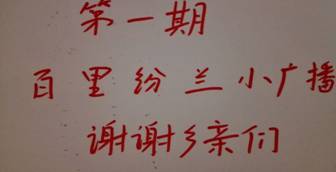 第一期
百里纷兰小广播
谢谢乡亲们